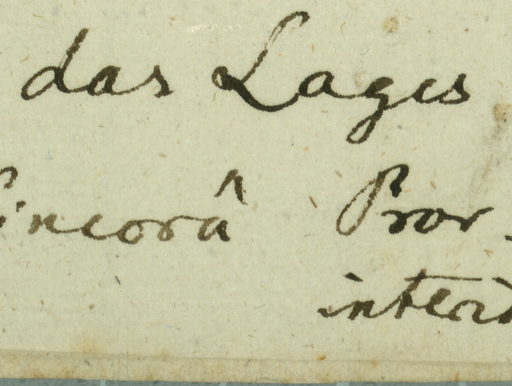 das Lages
Sincorâ Prov.
interi